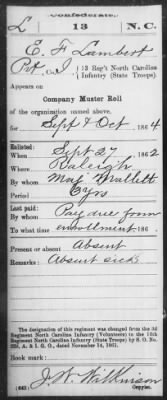 Confederate.
L 13 N.C.
E. F. Lambert
Pvt, Co. I, 13 Reg't North Carolina
Infantry (State Troops)
Appears on
Company Muster Roll
of the organization named above,
for Sept & Oct, 1864
Enlisted:
When Sept 27, 1862
Where Raleigh
By whom Maj Mallett
Period
Last paid:
By whom Pay due from
To what time enrollment, 186
Present or absent Absent
Remarks: Absent sick
The designation of this regiment was changed from the 3d
Regiment North Carolina Infantry (Volunteers) to the 13th
Regiment North Carolina Infantry (State Troops) by S. O. No.
A. & I. G. O., dated November 14, 1861.
Book mark:
(642) J. W. Wilkinson
Copyist.